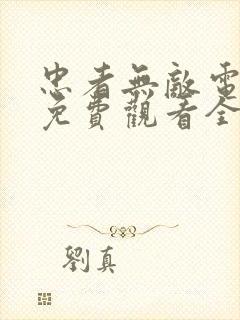 忠者無敵電
免費觀看全
劉真